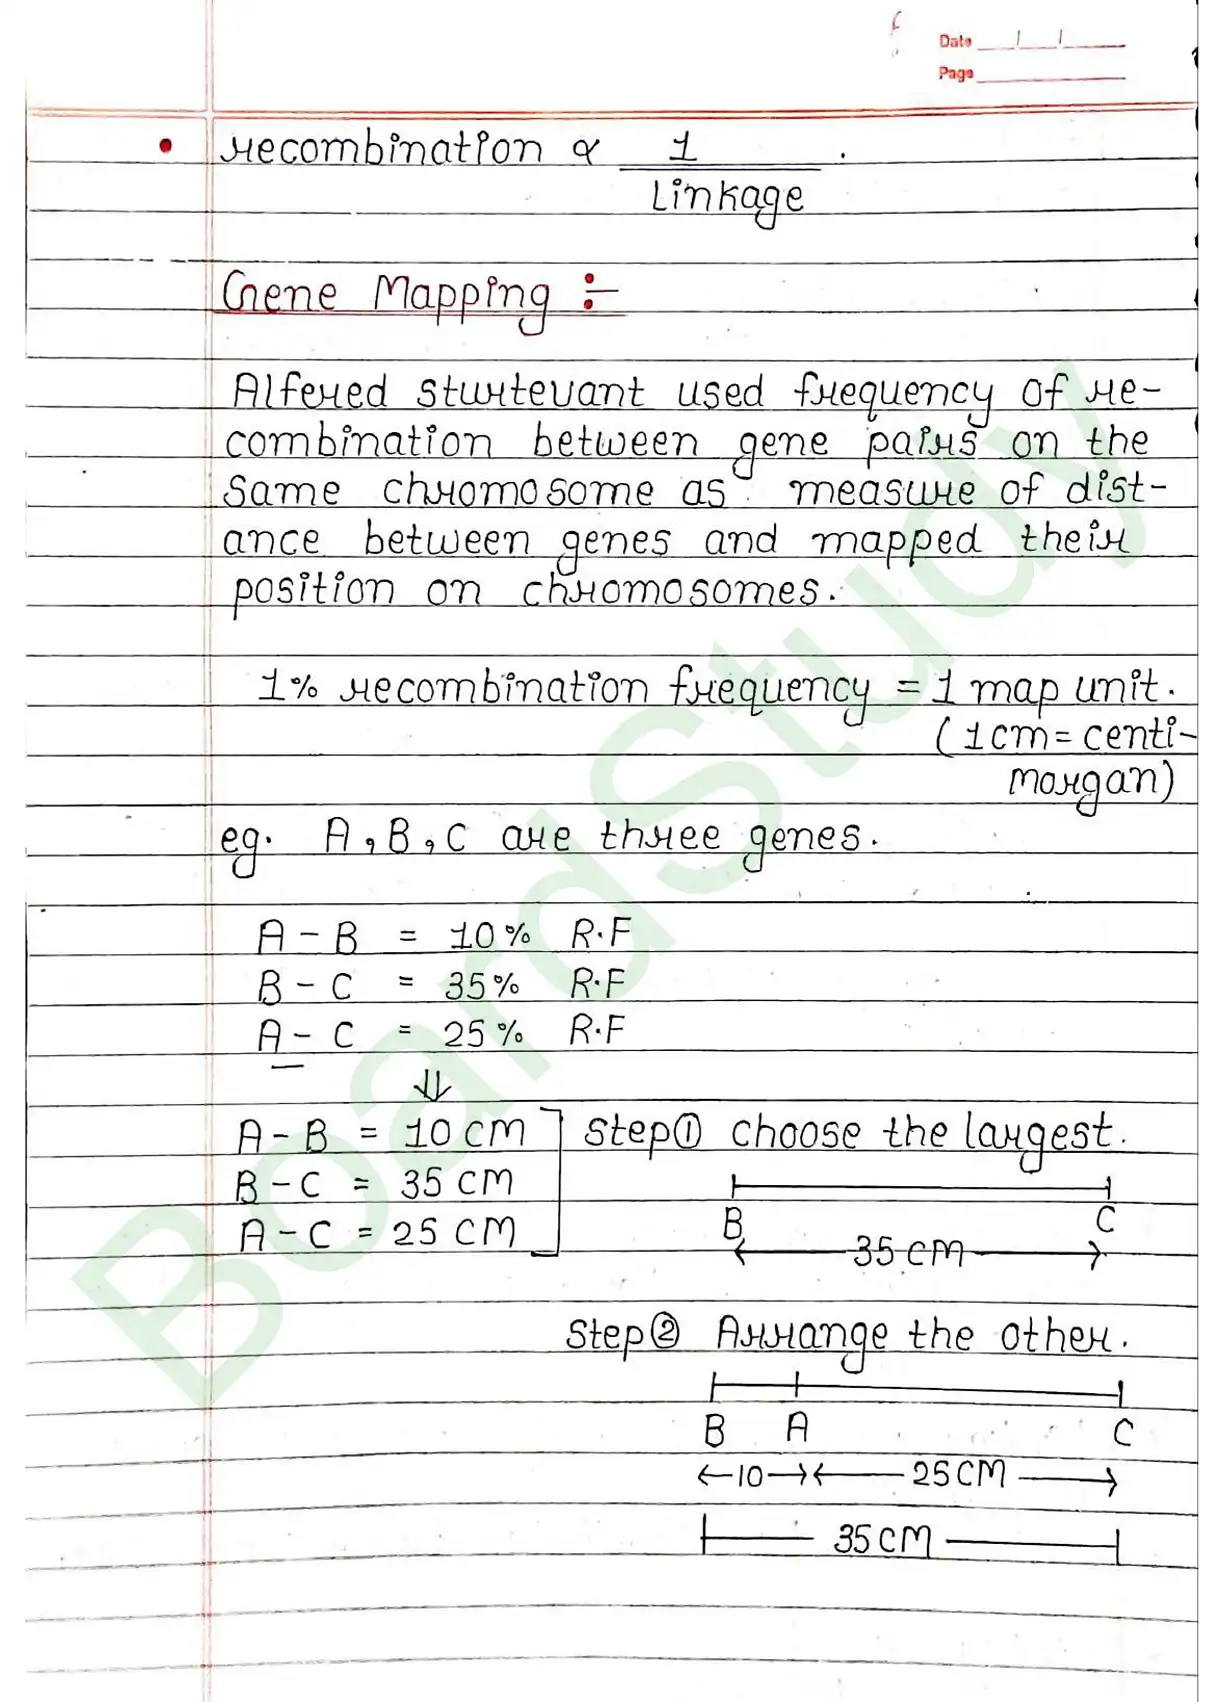 Date
Page
recombination ∝ 1
Linkage
Gene Mapping :-
Alfered sturtevant used frequency of re-
combination between gene pairs on the
same chromosome as measure of dist-
ance between genes and mapped their
position on chromosomes.
1% recombination frequency = 1 map unit.
(1cm = centi-
morgan)
eg. A, B, C are three genes.
A - B = 10% R.F
B - C = 35% R.F
A - C = 25% R.F
⇓
A - B = 10 CM Step ① choose the largest.
B - C = 35 CM
A - C = 25 CM
B C
35 CM
Step ② Arrange the other.
B A C
10 25 CM
35 CM
BoardStudy